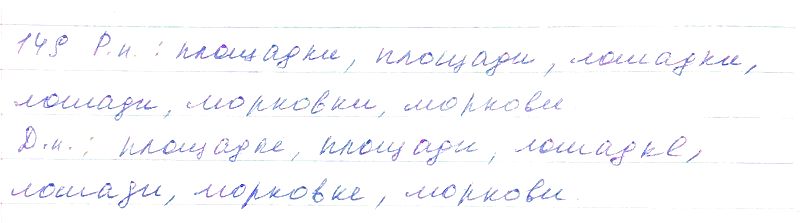 149 Р.п.: площадки, площади, лошадки,
лошади, морковки, моркови
Д.п.: площадке, площади, лошадке,
лошади, морковке, моркови.